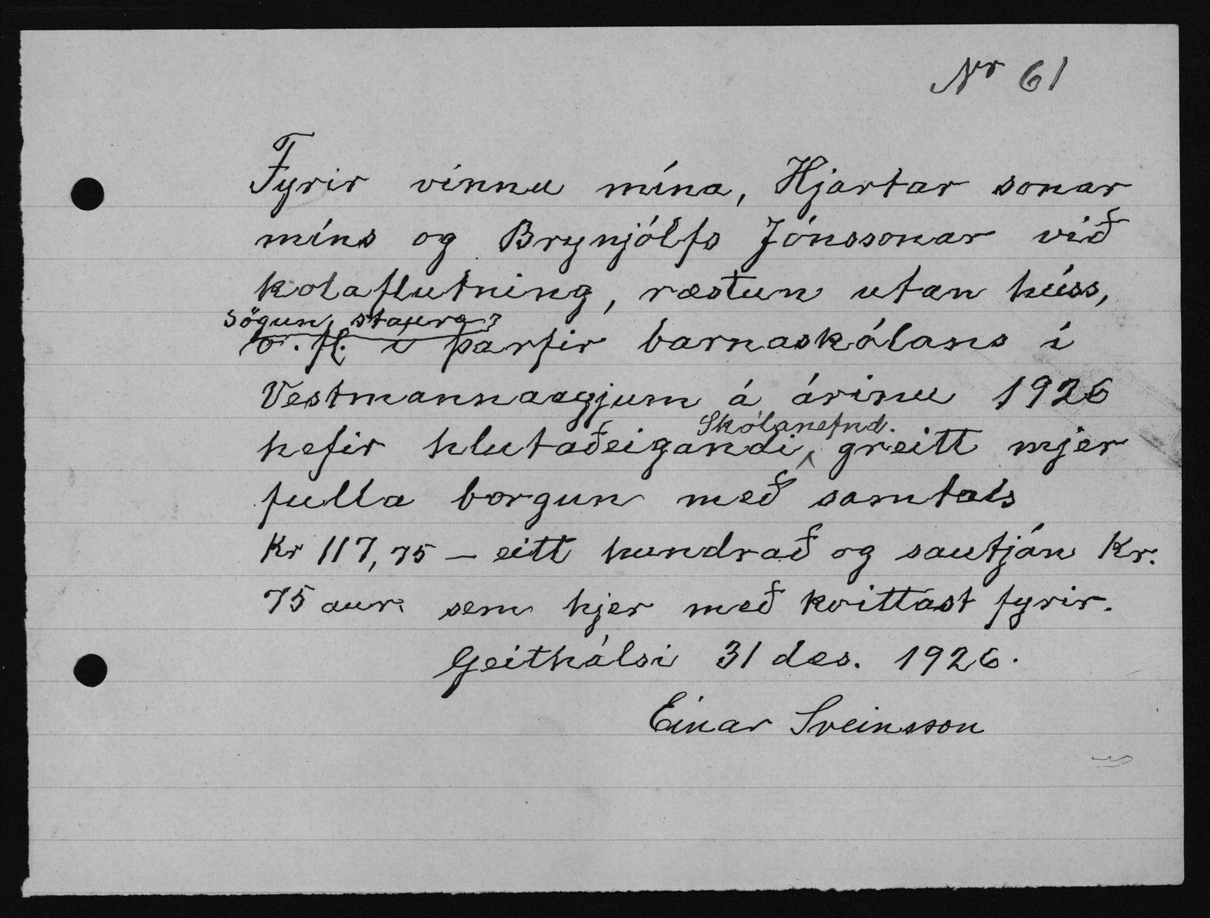 Nr 61
Fyrir vinnu mína, Hjartar sonar
míns og Brynjólfs Jónssonar við
kolaflutning, ræstun utan húss,
sögun staura
o. fl. í þarfir barnaskólans í
Vestmannaeyjum á árinu 1926
Skólanefnd.
hefir hlutaðeigandi greitt mjer
fulla borgun með samtals
Kr 117,75 – eitt hundrað og sautján Kr.
75 aur. sem hjer með kvittast fyrir.
Geithálsi 31 des. 1926.
Einar Sveinsson